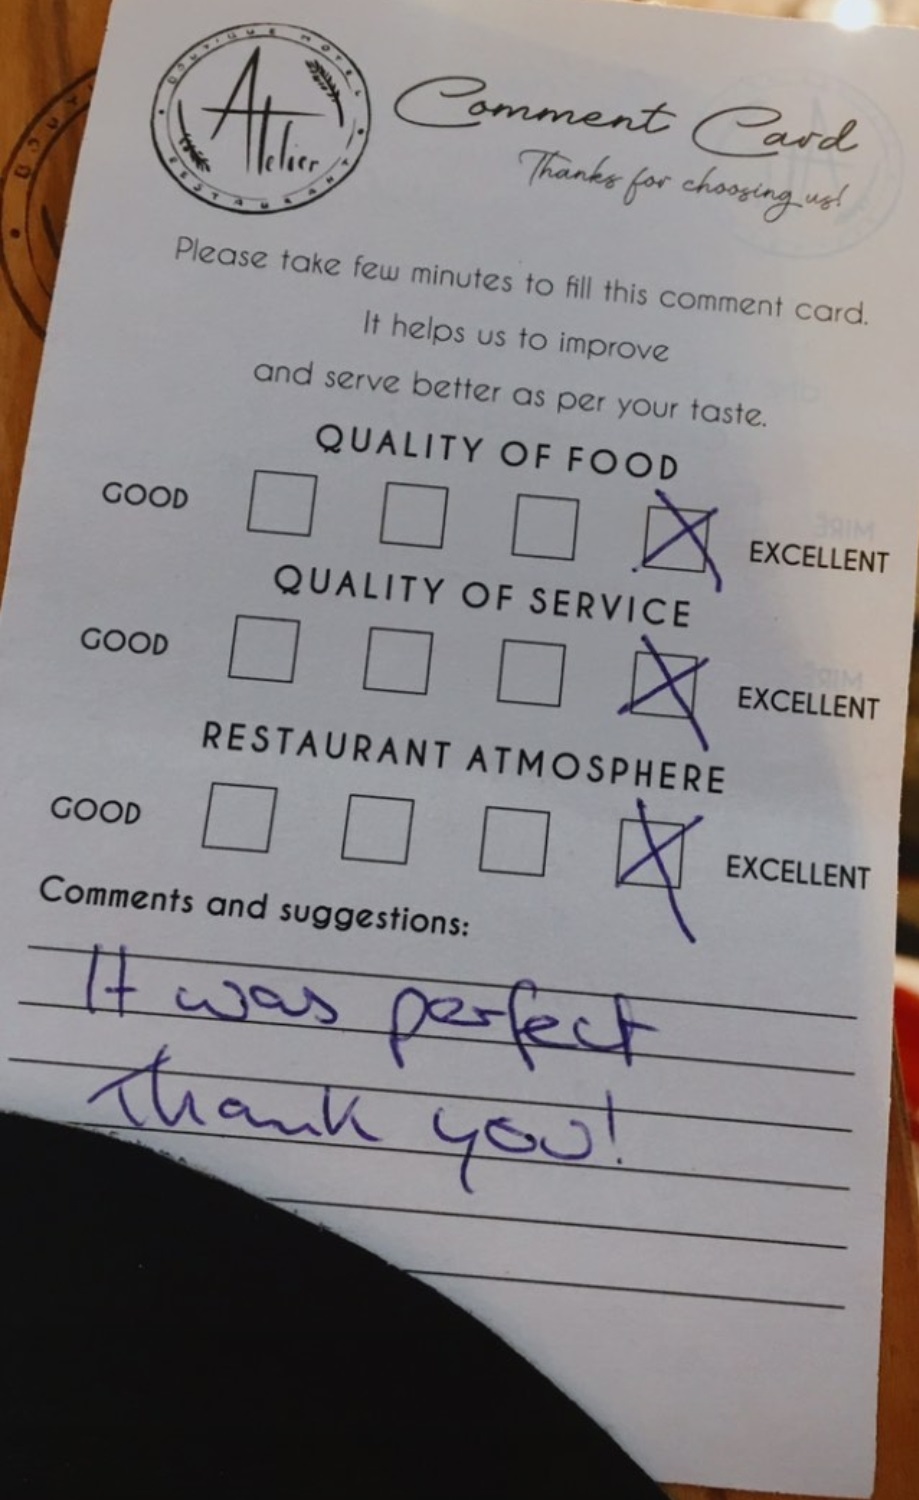 BOUTIQUE HOTEL
Atelier
RESTAURANT
Comment Card
Thanks for choosing us!
Please take few minutes to fill this comment card.
It helps us to improve
and serve better as per your taste.
QUALITY OF FOOD
GOOD EXCELLENT
QUALITY OF SERVICE
GOOD EXCELLENT
RESTAURANT ATMOSPHERE
GOOD EXCELLENT
Comments and suggestions:
It was perfect
Thank you!